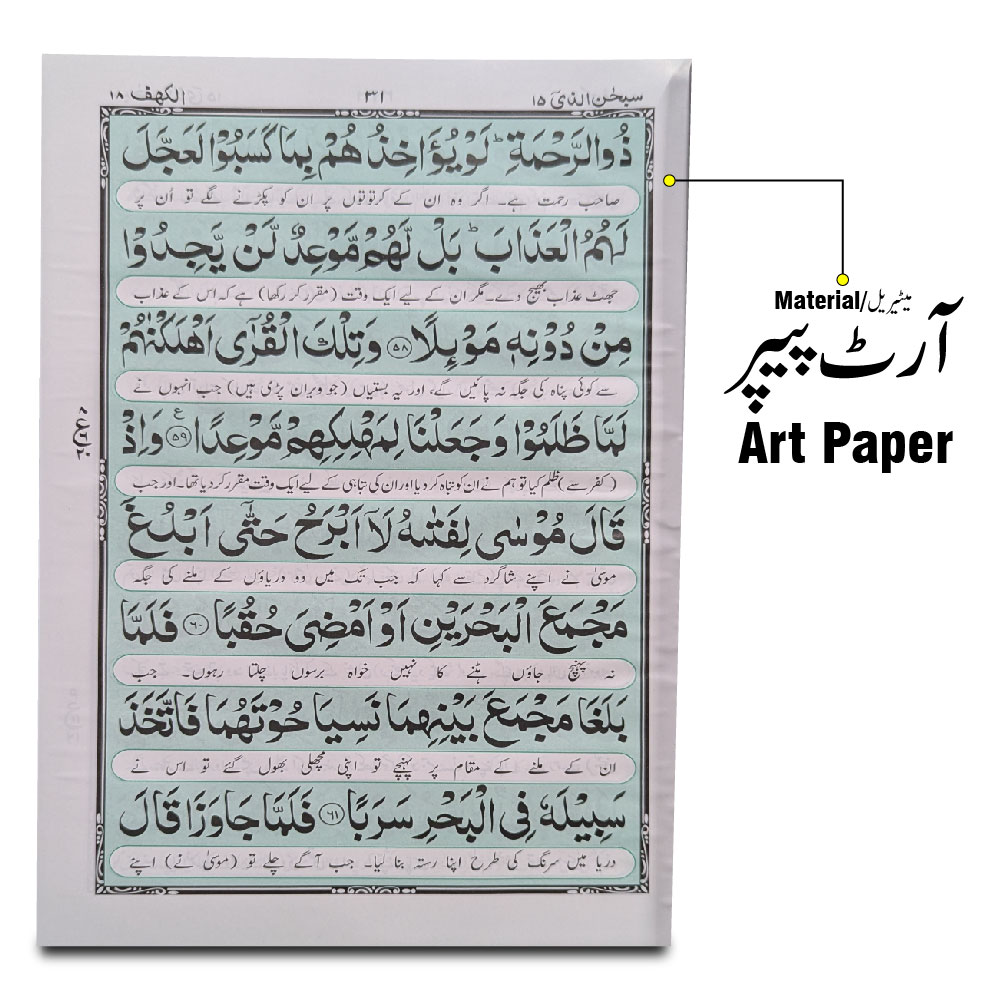 سبحٰن الذی ۱۵
۳۱
الکهف ۱۸
ذُو الرَّحْمَةِ ؕ لَوْ يُؤَاخِذُهُمْ بِمَا كَسَبُوْا لَعَجَّلَ
صاحب رحمت ہے۔ اگر وہ ان کے کرتوتوں پر ان کو پکڑنے لگے تو اُن پر
لَهُمُ الْعَذَابَ ؕ بَلْ لَّهُمْ مَّوْعِدٌ لَّنْ يَّجِدُوْا
جھٹ عذاب بھیج دے۔ مگر ان کے لیے ایک وقت (مقرر کر رکھا) ہے کہ اس کے عذاب
مِنْ دُوْنِهٖ مَوْىِٕلًا ﴿۵۸﴾ وَتِلْكَ الْقُرٰٓى اَهْلَكْنٰهُمْ
سے کوئی پناہ کی جگہ نہ پائیں گے، اور یہ بستیاں (جو ویران پڑی ہیں) جب انہوں نے
لَمَّا ظَلَمُوْا وَجَعَلْنَا لِمَهْلِكِهِمْ مَّوْعِدًا ﴿۵۹﴾ ع وَاِذْ
(کفر سے) ظلم کیا تو ہم نے ان کو تباہ کر دیا اور ان کی تباہی کے لیے ایک وقت مقرر کر دیا تھا۔ اور جب
قَالَ مُوْسٰى لِفَتٰىهُ لَاۤ اَبْرَحُ حَتّٰۤى اَبْلُغَ
موسیٰ نے اپنے شاگرد سے کہا کہ جب تک میں دو دریاؤں کے ملنے کی جگہ
مَجْمَعَ الْبَحْرَيْنِ اَوْ اَمْضِىَ حُقُبًا ﴿۶۰﴾ فَلَمَّا
نہ پہنچ جاؤں ہٹنے کا نہیں خواہ برسوں چلتا رہوں۔ جب
بَلَغَا مَجْمَعَ بَيْنِهِمَا نَسِيَا حُوْتَهُمَا فَاتَّخَذَ
ان کے ملنے کے مقام پر پہنچے تو اپنی مچھلی بھول گئے تو اس نے
سَبِيْلَهٗ فِى الْبَحْرِ سَرَبًا ﴿۶۱﴾ فَلَمَّا جَاوَزَا قَالَ
دریا میں سرنگ کی طرح اپنا رستہ بنا لیا۔ جب آگے چلے تو (موسیٰ نے) اپنے
Material/میٹیریل
آرٹ پیپر
Art Paper